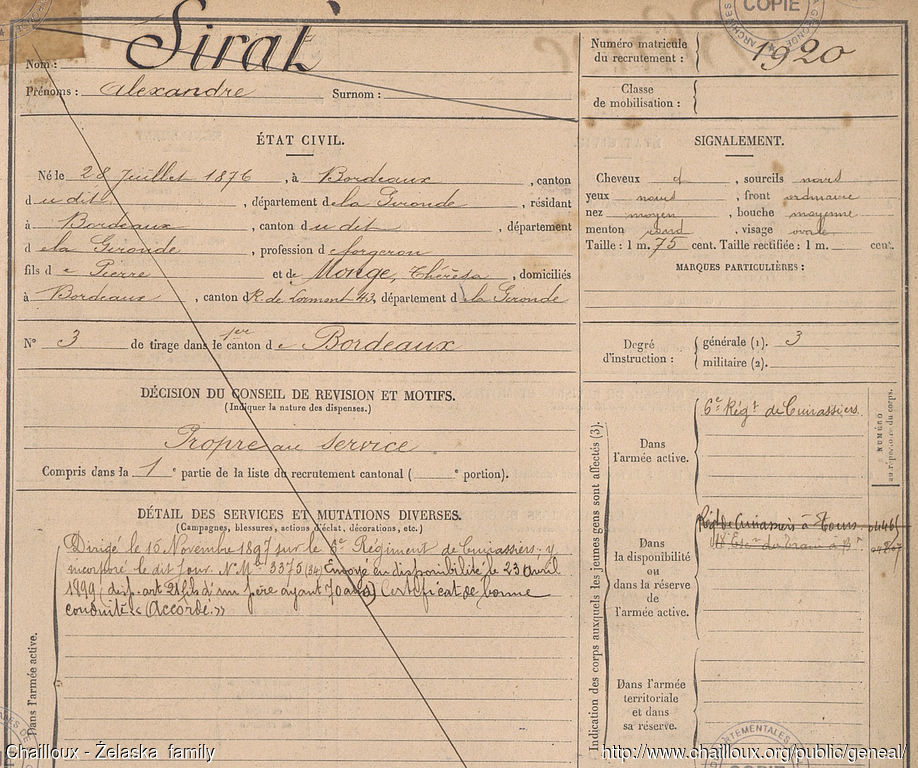 COPIE
Nom : Sirat
Prénoms : Alexandre Surnom :
Numéro matricule du recrutement : 1920
Classe de mobilisation :
ÉTAT CIVIL.
Né le 28 Juillet 1876, à Bordeaux, canton
dudit, département de la Gironde, résidant
à Bordeaux, canton dudit, département
de la Gironde, profession de forgeron
fils de Pierre et de Monge, Thérèsa, domiciliés
à Bordeaux, canton d R. de Lormont 43, département de la Gironde
N° 3 de tirage dans le 1er canton de Bordeaux
DÉCISION DU CONSEIL DE REVISION ET MOTIFS.
(Indiquer la nature des dispenses.)
Propre au service
Compris dans la 1e partie de la liste du recrutement cantonal ( e portion).
DÉTAIL DES SERVICES ET MUTATIONS DIVERSES.
(Campagnes, blessures, actions d'éclat, décorations, etc.)
Dirigé le 15 Novembre 1897 sur le 6e Régiment de Cuirassiers, y
incorporé le dit jour. N° Mle 3375 (34) Envoyé en disponibilité le 23 avril
1899, disp. art 21 fils d'un père ayant 70 ans) Certificat de bonne
conduite « Accordé. »
Dans l'armée active.
SIGNALEMENT.
Cheveux et, sourcils noirs
yeux noirs, front ordinaire
nez moyen, bouche moyenne
menton rond, visage ovale
Taille : 1 m. 75 cent. Taille rectifiée : 1 m. cent.
MARQUES PARTICULIÈRES :
Degré d'instruction :
générale (1). 3
militaire (2).
Indication des corps auxquels les jeunes gens sont affectés (3).
NUMÉRO
au répertoire du corps.
Dans
l'armée active.
6e Régt de Cuirassiers
Dans
la disponibilité
ou
dans la réserve
de
l'armée active.
Régt de Cuirassiers à Tours
18e Esc. du train à Bx
Dans l'armée
territoriale
et dans
sa réserve.
COPIE
Chailloux - Želaska family
http://www.chailloux.org/public/geneal/